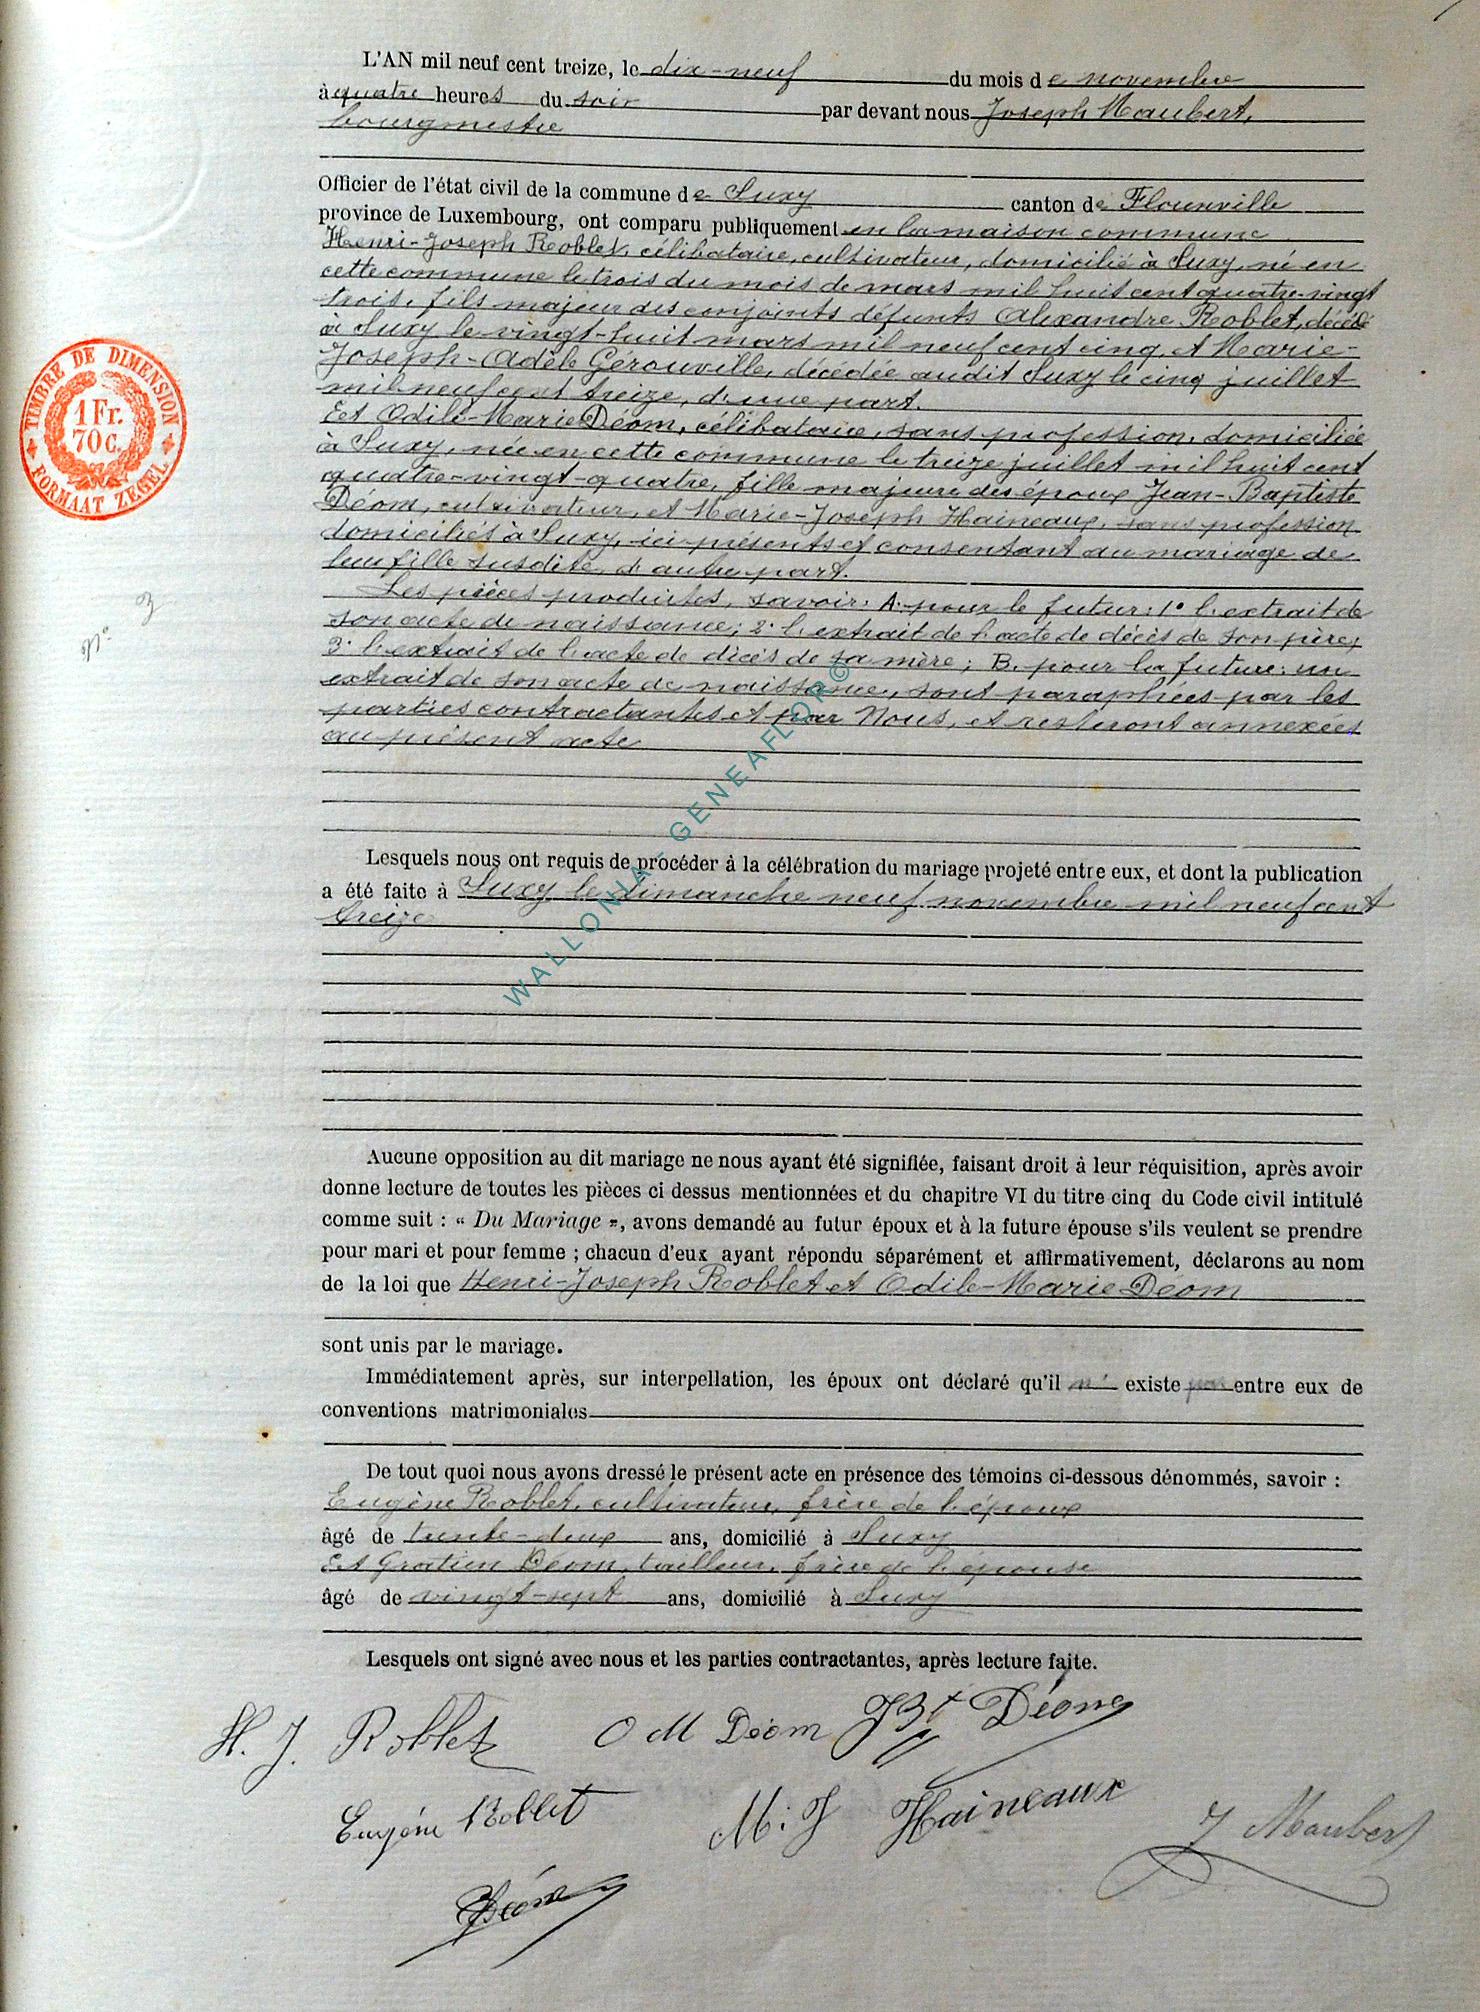 L'AN mil neuf cent treize, le dix-neuf du mois de novembre
à quatre heures du soir par devant nous Joseph Maubert,
bourgmestre
Officier de l'état civil de la commune de Suxy canton de Florenville
province de Luxembourg, ont comparu publiquement en la maison commune
Henri-Joseph Roblet, célibataire, cultivateur, domicilié à Suxy, né en
cette commune le trois du mois de mars mil huit cent quatre-vingt
trois, fils majeur des conjoints défunts Alexandre Roblet, décédé
à Suxy le vingt-huit mars mil neuf cent cinq, et Marie-
Joseph-Adèle Gérouville, décédée audit Suxy le cinq juillet
mil neuf cent treize, d'une part.
Et Odile-Marie Déom, célibataire, sans profession, domiciliée
à Suxy, née en cette commune le treize juillet mil huit cent
quatre-vingt-quatre, fille majeure des époux Jean-Baptiste
Déom, cultivateur, et Marie-Joseph Haineaux, sans profession
domiciliés à Suxy, ici présents et consentant au mariage de
leur fille susdite, d'autre part.
Les pièces produites, savoir: A. pour le futur: 1° l'extrait de
son acte de naissance; 2° l'extrait de l'acte de décès de son père;
3° l'extrait de l'acte de décès de sa mère; B. pour la future: un
extrait de son acte de naissance, sont paraphées par les
parties contractantes et par Nous, et resteront annexées
au présent acte
Lesquels nous ont requis de procéder à la célébration du mariage projeté entre eux, et dont la publication
a été faite à Suxy le dimanche neuf novembre mil neuf cent
treize
Aucune opposition au dit mariage ne nous ayant été signifiée, faisant droit à leur réquisition, après avoir
donne lecture de toutes les pièces ci dessus mentionnées et du chapitre VI du titre cinq du Code civil intitulé
comme suit : « Du Mariage », avons demandé au futur époux et à la future épouse s'ils veulent se prendre
pour mari et pour femme ; chacun d'eux ayant répondu séparément et affirmativement, déclarons au nom
de la loi que Henri-Joseph Roblet et Odile-Marie Déom
sont unis par le mariage.
Immédiatement après, sur interpellation, les époux ont déclaré qu'il n' existe pas entre eux de
conventions matrimoniales
De tout quoi nous avons dressé le présent acte en présence des témoins ci-dessous dénommés, savoir :
Eugène Roblet, cultivateur, frère de l'époux
âgé de trente-deux ans, domicilié à Suxy
Et Gratien Déom, tailleur, frère de l'épouse
âgé de vingt-sept ans, domicilié à Suxy
Lesquels ont signé avec nous et les parties contractantes, après lecture faite.
H. J. Roblet O M Déom JBt Déom
Eugène Roblet M. J Haineaux J Maubert
Déom
TIMBRE DE DIMENSION
1 Fr.
70 C.
FORMAAT ZEGEL
N° 3
WALLONIA - GENEAFLOR ©